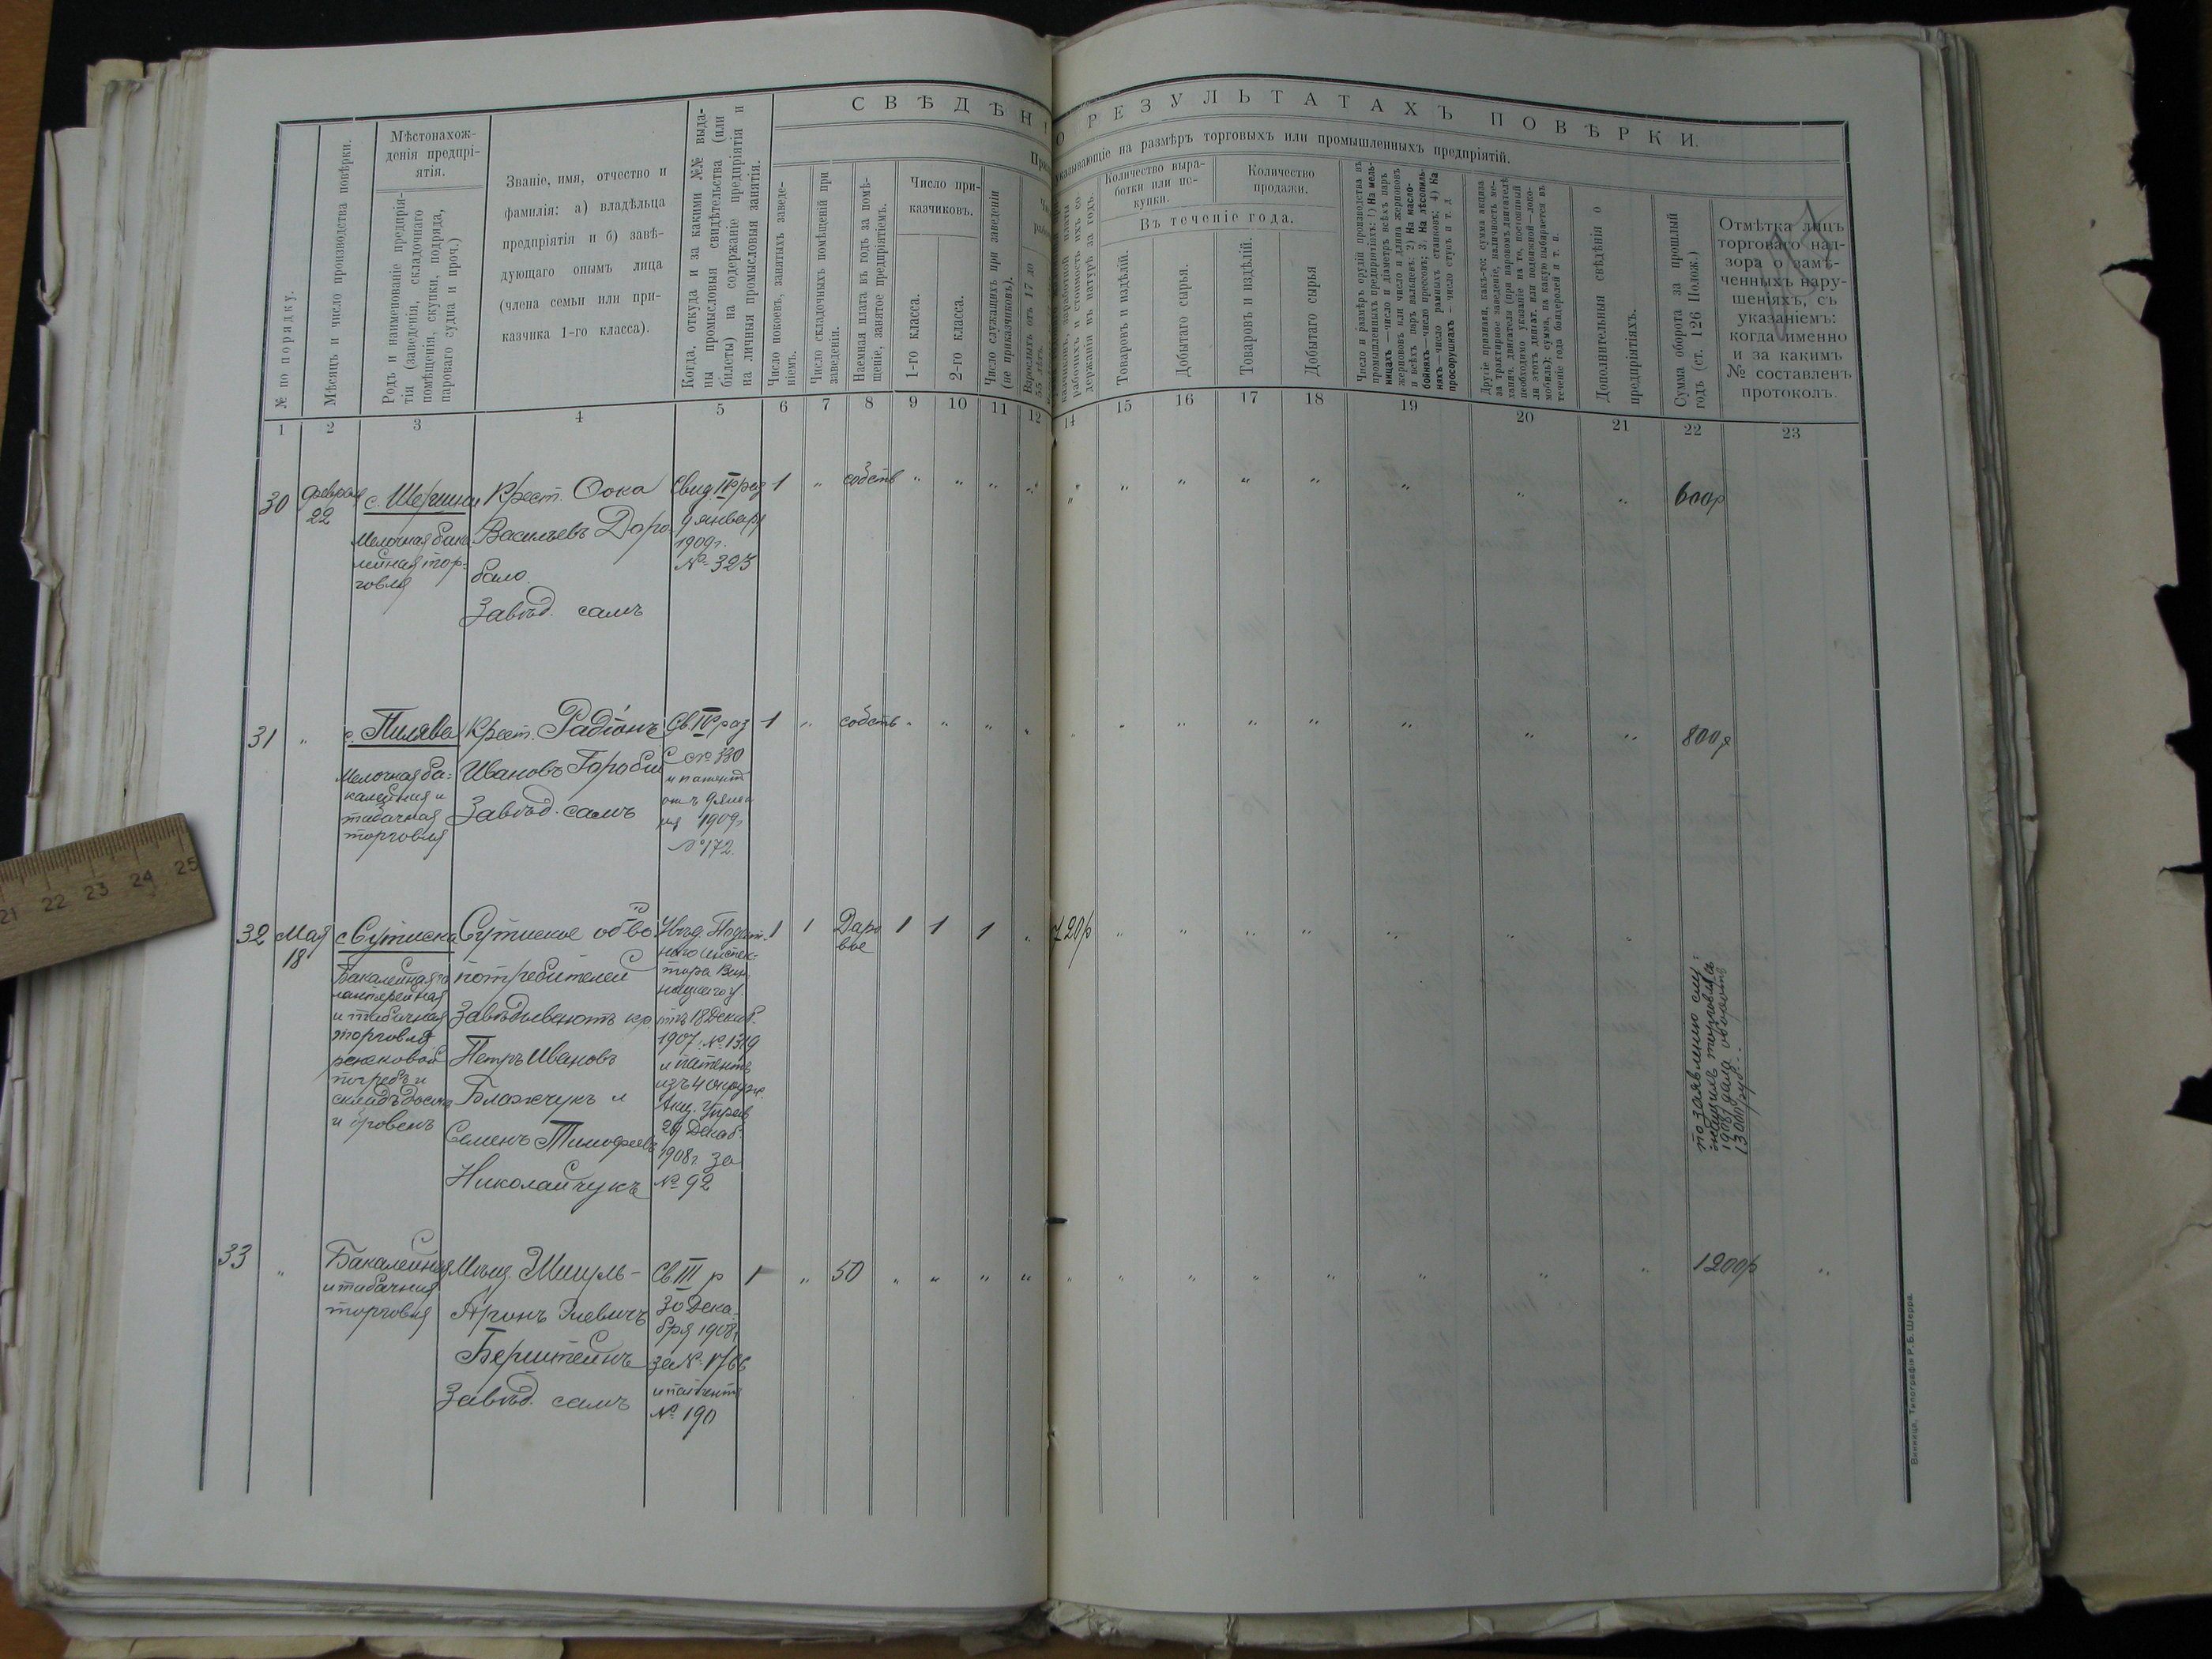 СВѢДѢНІ
О РЕЗУЛЬТАТАХЪ ПОВѢРКИ.
указывающіе на размѣръ торговыхъ или промышленныхъ предпріятій.
№ по порядку.
Мѣсяцъ и число производства повѣрки.
Мѣстонахож-
денія предпрі-
ятія.
Родъ и наименованіе предпрія-
тія (заведенія, складочнаго
помѣщенія, скупки, подряда,
пароваго судна и проч.)
Званіе, имя, отчество и
фамилія: а) владѣльца
предпріятія и б) завѣ-
дующаго онымъ лица
(члена семьи или при-
казчика 1-го класса).
Когда, откуда и за какими №№ выда-
ны промысловыя свидѣтельства (или
билеты) на содержаніе предпріятія и
на личныя промысловыя занятія.
Число покоевъ, занятыхъ заведе-
ніемъ.
Число складочныхъ помѣщеній при
заведеніи.
Наемная плата въ годъ за помѣ-
щеніе, занятое предпріятіемъ.
Число при-
казчиковъ.
1-го класса.
2-го класса.
Число служащихъ при заведеніи
(не приказчиковъ).
Взрослыхъ отъ 17 до
55 лѣтъ.
казчиковъ, заработной платы
рабочихъ и стоимость ихъ со-
держанія въ натурѣ за годъ.
Количество выра-
ботки или ис-
купки.
Количество
продажи.
Въ теченіе года.
Товаровъ и издѣлій.
Добытаго сырья.
Товаровъ и издѣлій.
Добытаго сырья
Число и размѣръ орудій производства въ
промышленныхъ предпріятіяхъ: 1) На мель-
ницахъ—число и діаметръ всѣхъ паръ
жернововъ или число и длина жернововъ
и всѣхъ паръ вальцевъ; 2) На масло-
бойняхъ—число прессовъ; 3. На лѣсопиль-
няхъ—число рамныхъ станковъ; 4) На
просорушкахъ — число ступъ и т. д
Другіе признаки, какъ-то: сумма акциза
за трактирное заведеніе, наличность ме-
ханич. двигателя (при паровомъ двигателѣ
необходимо указаніе на то, постоянный
ли этотъ двигат. или подвижной—локо-
мобиль); сумма, на какую выбирается въ
теченіе года бандеролей и т. п.
Дополнительныя свѣдѣнія о
предпріятіяхъ.
Сумма оборота за прошлый
годъ (ст. 126 Полож.)
Отмѣтка лицъ
торговаго над-
зора о замѣ-
ченныхъ нару-
шеніяхъ, съ
указаніемъ:
когда именно
и за какимъ
№ составленъ
протоколъ.
1 2 3 4 5 6 7 8 9 10 11 12 14 15 16 17 18 19 20 21 22 23
30 Февраля
22
с. Шершни
Мелочная бака
лейная тор-
говля
Крест. Фока
Васильевъ Доро
бало.
Завѣд. самъ
Свид. IV раз
9 января
1909 г.
№ 323
1 " собств " " " " " " " " " " " " 600р
31 " с. Пилява
Мелочная ба-
калейная и
табачная
торговля
Крест. Радіонъ
Ивановъ
Завѣд. самъ
Св. IV раз
№ 330
и патент
отъ 9 янва
ря 1909г
№ 172.
1 " собств " " " " " " " " " " " " 800р
32 Мая
18
с Сутиска
Бакалейная га
лантерейная
и табачная
торговля
ренсковой
погребъ и
складъ досокъ
и бровенъ
Сутиское об-во
потребителей
Завѣдываютъ кр.
Петръ Ивановъ
Блажчукъ и
Семенъ Тимофеевъ
Николайчукъ
Увѣд. Подат-
ного инспек-
тора Вин-
ницкаго у.
отъ 18 Декаб.
1907. № 1319
и патентъ
изъ 4 округ.
Акц. Управ
29 Декаб.
1908г за
№ 92
1 1 Даро
вое
1 1 1 " 720р " " " " " " "
по заявленію слу-
жащихъ торговля
1908г дала оборотъ
13000 руб.
33 " Бакалейная
и табачная
торговля
Мѣщ. Шмуль-
Аронъ Элевичъ
Берштейнъ
Завѣд. самъ
Св. III р
30 Дека-
бря 1908г
за №
и патентъ
№ 190
1 " 50 " " " " " " " " " " " " 1200р "
Винница, Типографія Р. Б. Шерра.
21 22 23 24 25